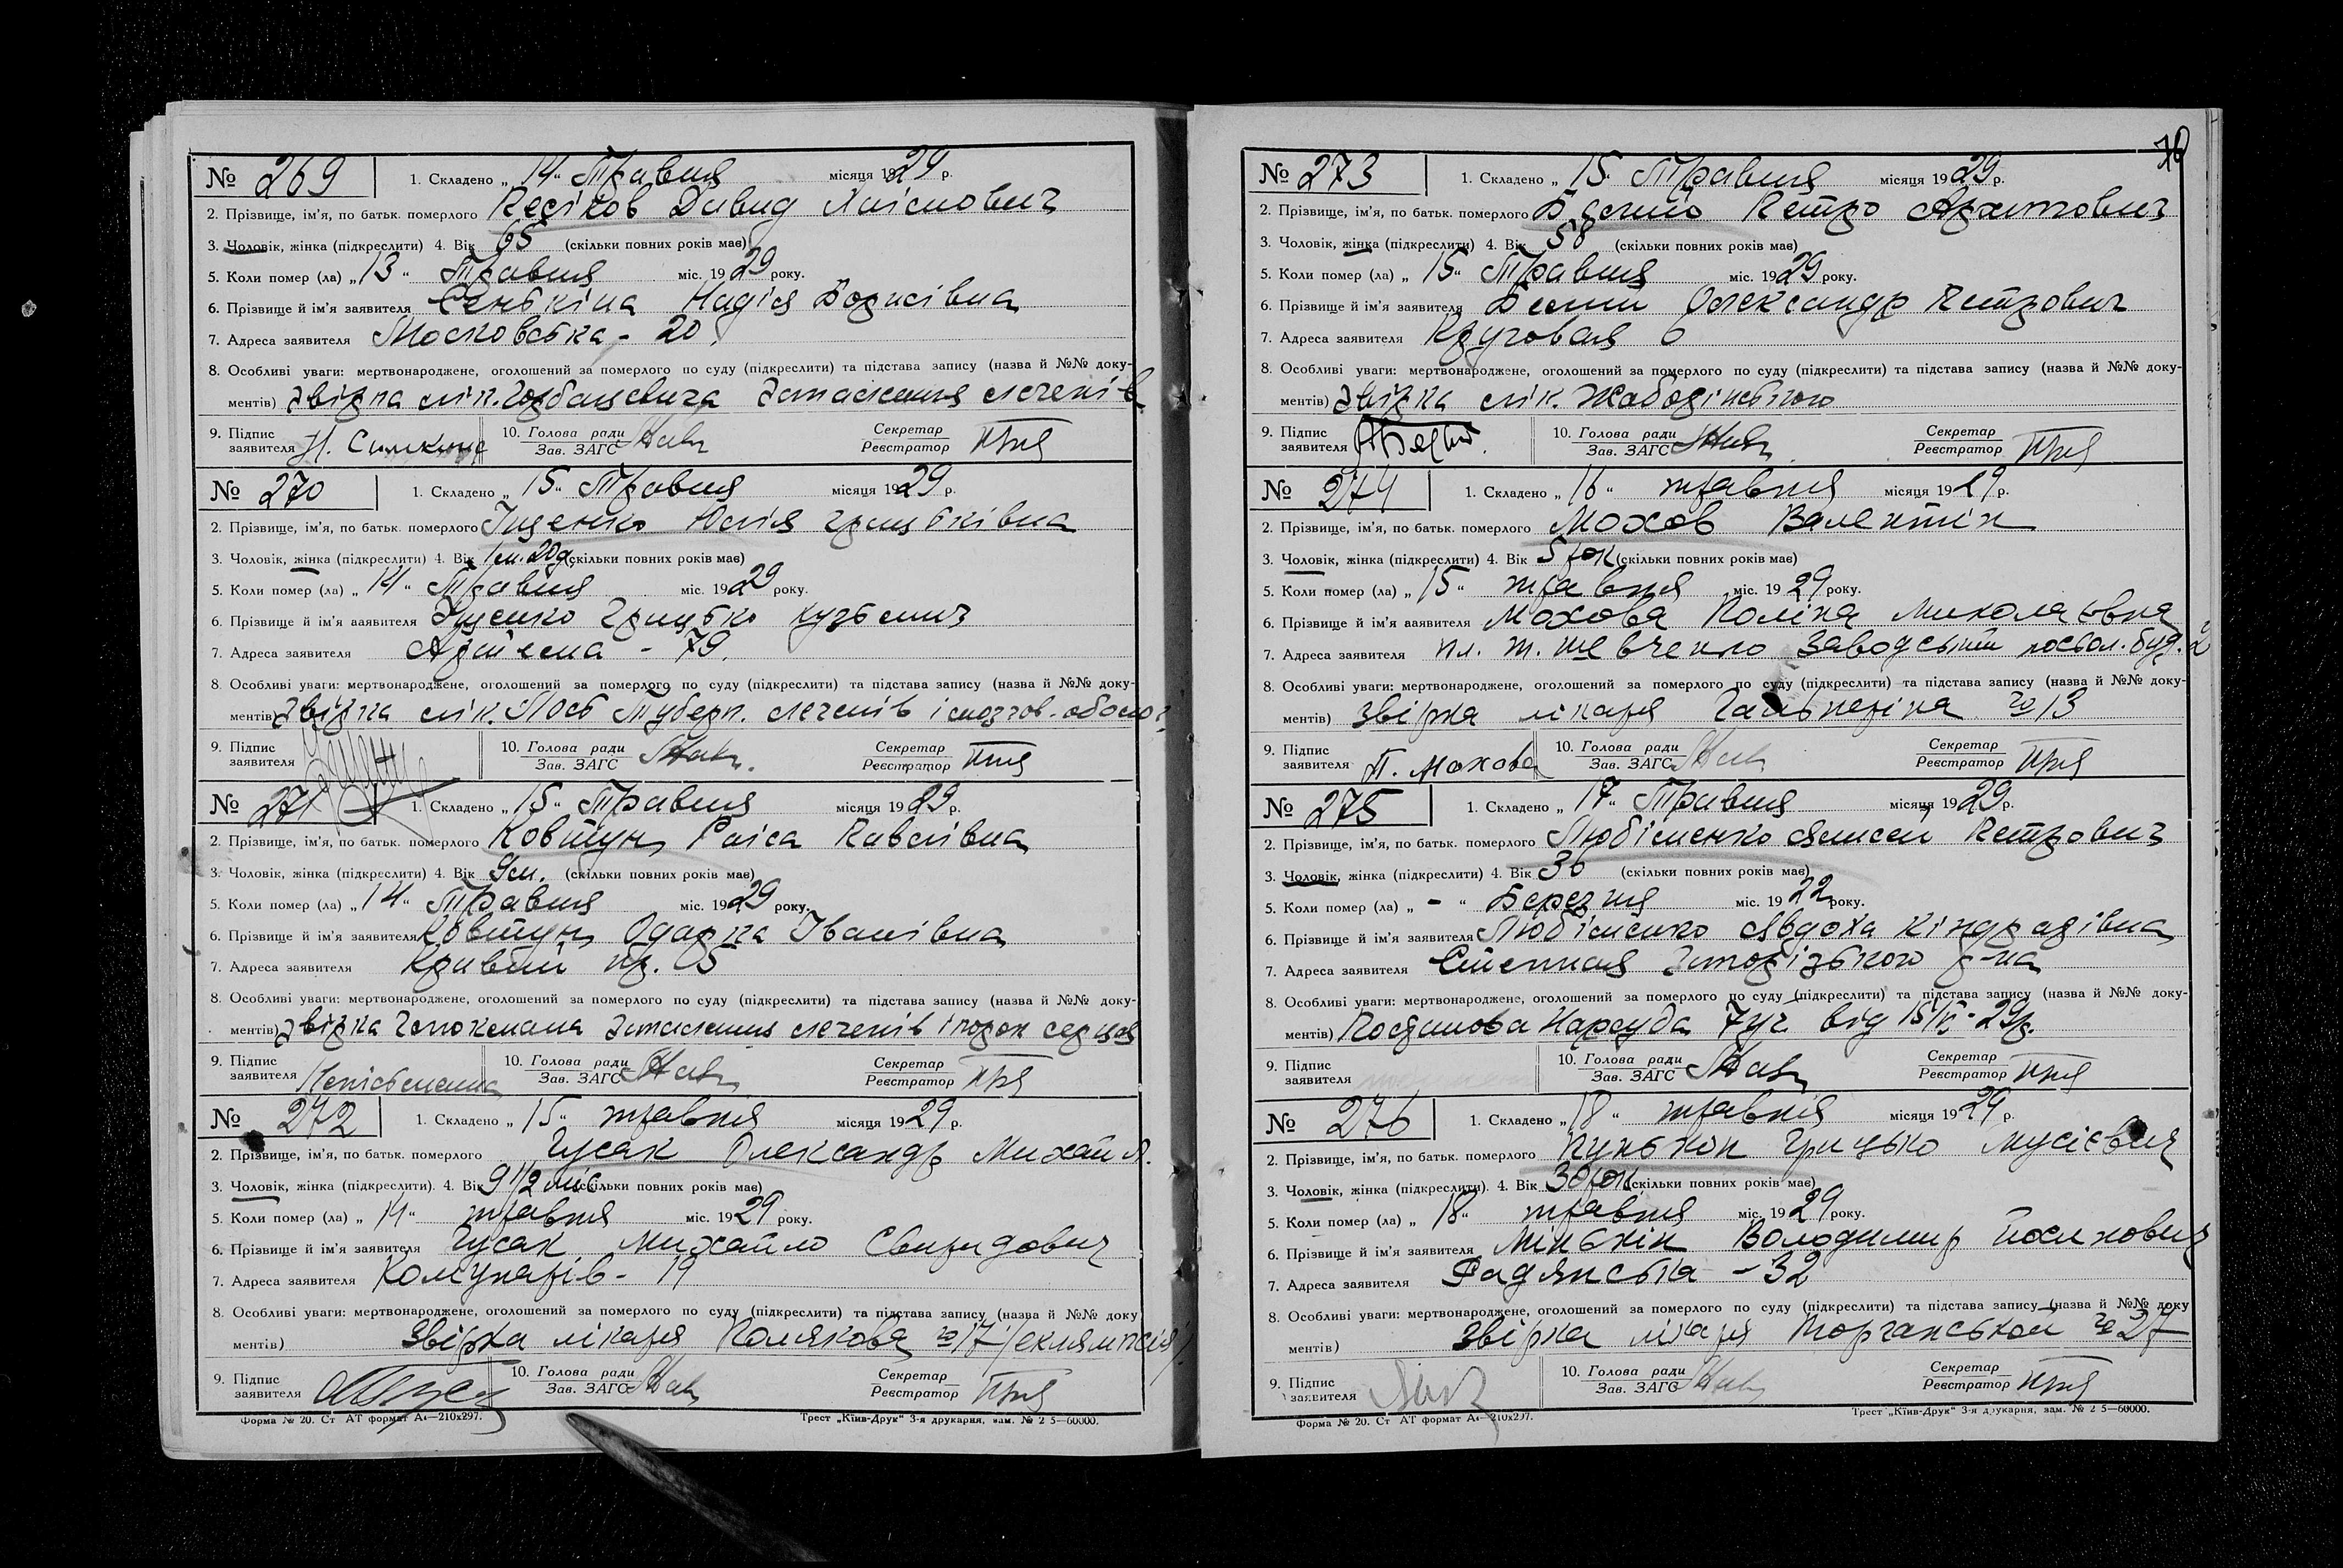 № 269 1. Складено „14“ Травня місяця 1929 р.
2. Прізвище, ім’я, по батьк. померлого Давид
3. Чоловік, жінка (підкреслити) 4. Вік 65 (скільки повних років має)
5. Коли помер (ла) „13“ Травня міс. 1929 року.
6. Прізвище й ім’я заявителя Надія Борисівна
7. Адреса заявителя Московська - 20
8. Особливі уваги: мертвонароджене, оголошений за померлого по суду (підкреслити) та підстава запису (назва й №№ доку-
ментів) Звідка лік. Горбацевича легенів
9. Підпис заявителя 10. Голова ради Зав. ЗАГС Секретар Реєстратор
№ 270 1. Складено „15“ Травня місяця 1929 р.
2. Прізвище, ім’я, по батьк. померлого Іщенко Юлія Грицьківна
3. Чоловік, жінка (підкреслити) 4. Вік 1 м. 20 д. (скільки повних років має)
5. Коли помер (ла) „14“ Травня міс. 1929 року.
6. Прізвище й ім’я заявителя Іщенко Грицько Кузьмич
7. Адреса заявителя Артема - 79.
8. Особливі уваги: мертвонароджене, оголошений за померлого по суду (підкреслити) та підстава запису (назва й №№ доку-
ментів) Звідка лік. Туберк. легенів і мозгов. оболог
9. Підпис заявителя 10. Голова ради Зав. ЗАГС Секретар Реєстратор
№ 271 1. Складено „15“ Травня місяця 1929 р.
2. Прізвище, ім’я, по батьк. померлого Ковтун Раіса Павлівна
3. Чоловік, жінка (підкреслити) 4. Вік 9 м. (скільки повних років має)
5. Коли помер (ла) „14“ Травня міс. 1929 року.
6. Прізвище й ім’я заявителя Ковтун Одарка Іванівна
7. Адреса заявителя Кривий пр. 5
8. Особливі уваги: мертвонароджене, оголошений за померлого по суду (підкреслити) та підстава запису (назва й №№ доку-
ментів) Звідка легенів і
9. Підпис заявителя Неписьменна 10. Голова ради Зав. ЗАГС Секретар Реєстратор
№ 272 1. Складено „15“ травня місяця 1929 р.
2. Прізвище, ім’я, по батьк. померлого Гусак Олександр Михайл.
3. Чоловік, жінка (підкреслити). 4. Вік 9 1/2 міс (скільки повних років має)
5. Коли помер (ла) „14“ травня міс. 1929 року.
6. Прізвище й ім’я заявителя Гусак Михайло Свиридович
7. Адреса заявителя Комунарів - 19
8. Особливі уваги: мертвонароджене, оголошений за померлого по суду (підкреслити) та підстава запису (назва й №№ доку
ментів) Звідка лікаря Полякова № 17 (еклямпсія)
9. Підпис заявителя 10. Голова ради Зав. ЗАГС Секретар Реєстратор
Форма № 20. Ст АТ формат А4—210х297. Трест „Київ-Друк“ 3-я друкарня, зам. № 2 5—60000.
70
№ 273 1. Складено „15“ Травня місяця 1929 р.
2. Прізвище, ім’я, по батьк. померлого Петро
3. Чоловік, жінка (підкреслити) 4. Вік 58 (скільки повних років має)
5. Коли помер (ла) „15“ Травня міс. 1929 року.
6. Прізвище й ім’я заявителя Олександр Петрович
7. Адреса заявителя Круговая 6
8. Особливі уваги: мертвонароджене, оголошений за померлого по суду (підкреслити) та підстава запису (назва й №№ доку-
ментів) Звідка лік. Жабодінського
9. Підпис заявителя 10. Голова ради Зав. ЗАГС Секретар Реєстратор
№ 274 1. Складено „16“ травня місяця 1929 р.
2. Прізвище, ім’я, по батьк. померлого Мохов Валентін
3. Чоловік, жінка (підкреслити) 4. Вік 5 рок (скільки повних років має)
5. Коли помер (ла) „15“ травня міс. 1929 року.
6. Прізвище й ім’я заявителя Мохова Поліна Миколаєвна
7. Адреса заявителя пл. Т. Шевченко Заводський буд. 2
8. Особливі уваги: мертвонароджене, оголошений за померлого по суду (підкреслити) та підстава запису (назва й №№ доку-
ментів) Звідка лікаря Гальперіна № 13
9. Підпис заявителя П. Мохова 10. Голова ради Зав. ЗАГС Секретар Реєстратор
№ 275 1. Складено „17“ Травня місяця 1929 р.
2. Прізвище, ім’я, по батьк. померлого Любіменко Петрович
3. Чоловік, жінка (підкреслити) 4. Вік 36 (скільки повних років має)
5. Коли помер (ла) „-“ Березня міс. 1922 року.
6. Прізвище й ім’я заявителя Любіменко Явдоха Кіндратівна
7. Адреса заявителя Степная Запорізького р-на
8. Особливі уваги: мертвонароджене, оголошений за померлого по суду (підкреслити) та підстава запису (назва й №№ доку-
ментів) Постанова Нарсуда 7 уч від
9. Підпис заявителя 10. Голова ради Зав. ЗАГС Секретар Реєстратор
№ 276 1. Складено „18“ травня місяця 1929 р.
2. Прізвище, ім’я, по батьк. померлого Грицько Мусієвич
3. Чоловік, жінка (підкреслити). 4. Вік 30 рок (скільки повних років має)
5. Коли помер (ла) „18“ травня міс. 1929 року.
6. Прізвище й ім’я заявителя Мінькін Володимир
7. Адреса заявителя Радянська - 32
8. Особливі уваги: мертвонароджене, оголошений за померлого по суду (підкреслити) та підстава запису (назва й №№ доку
ментів) Звідка лікаря № 27
9. Підпис заявителя 10. Голова ради Зав. ЗАГС Секретар Реєстратор
Форма № 20. Ст АТ формат А4—210х297. Трест „Київ-Друк“ 3-я друкарня, зам. № 2 5—60000.